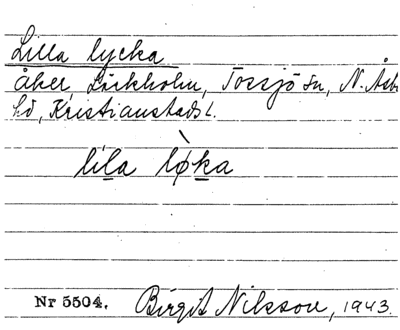 Lilla lycka
åker, Lärkholm, Tossjö sn, N. Åsbo
hd, Kristianstads l.
lila løka
Nr 5504. Birgit Nilsson, 1943.